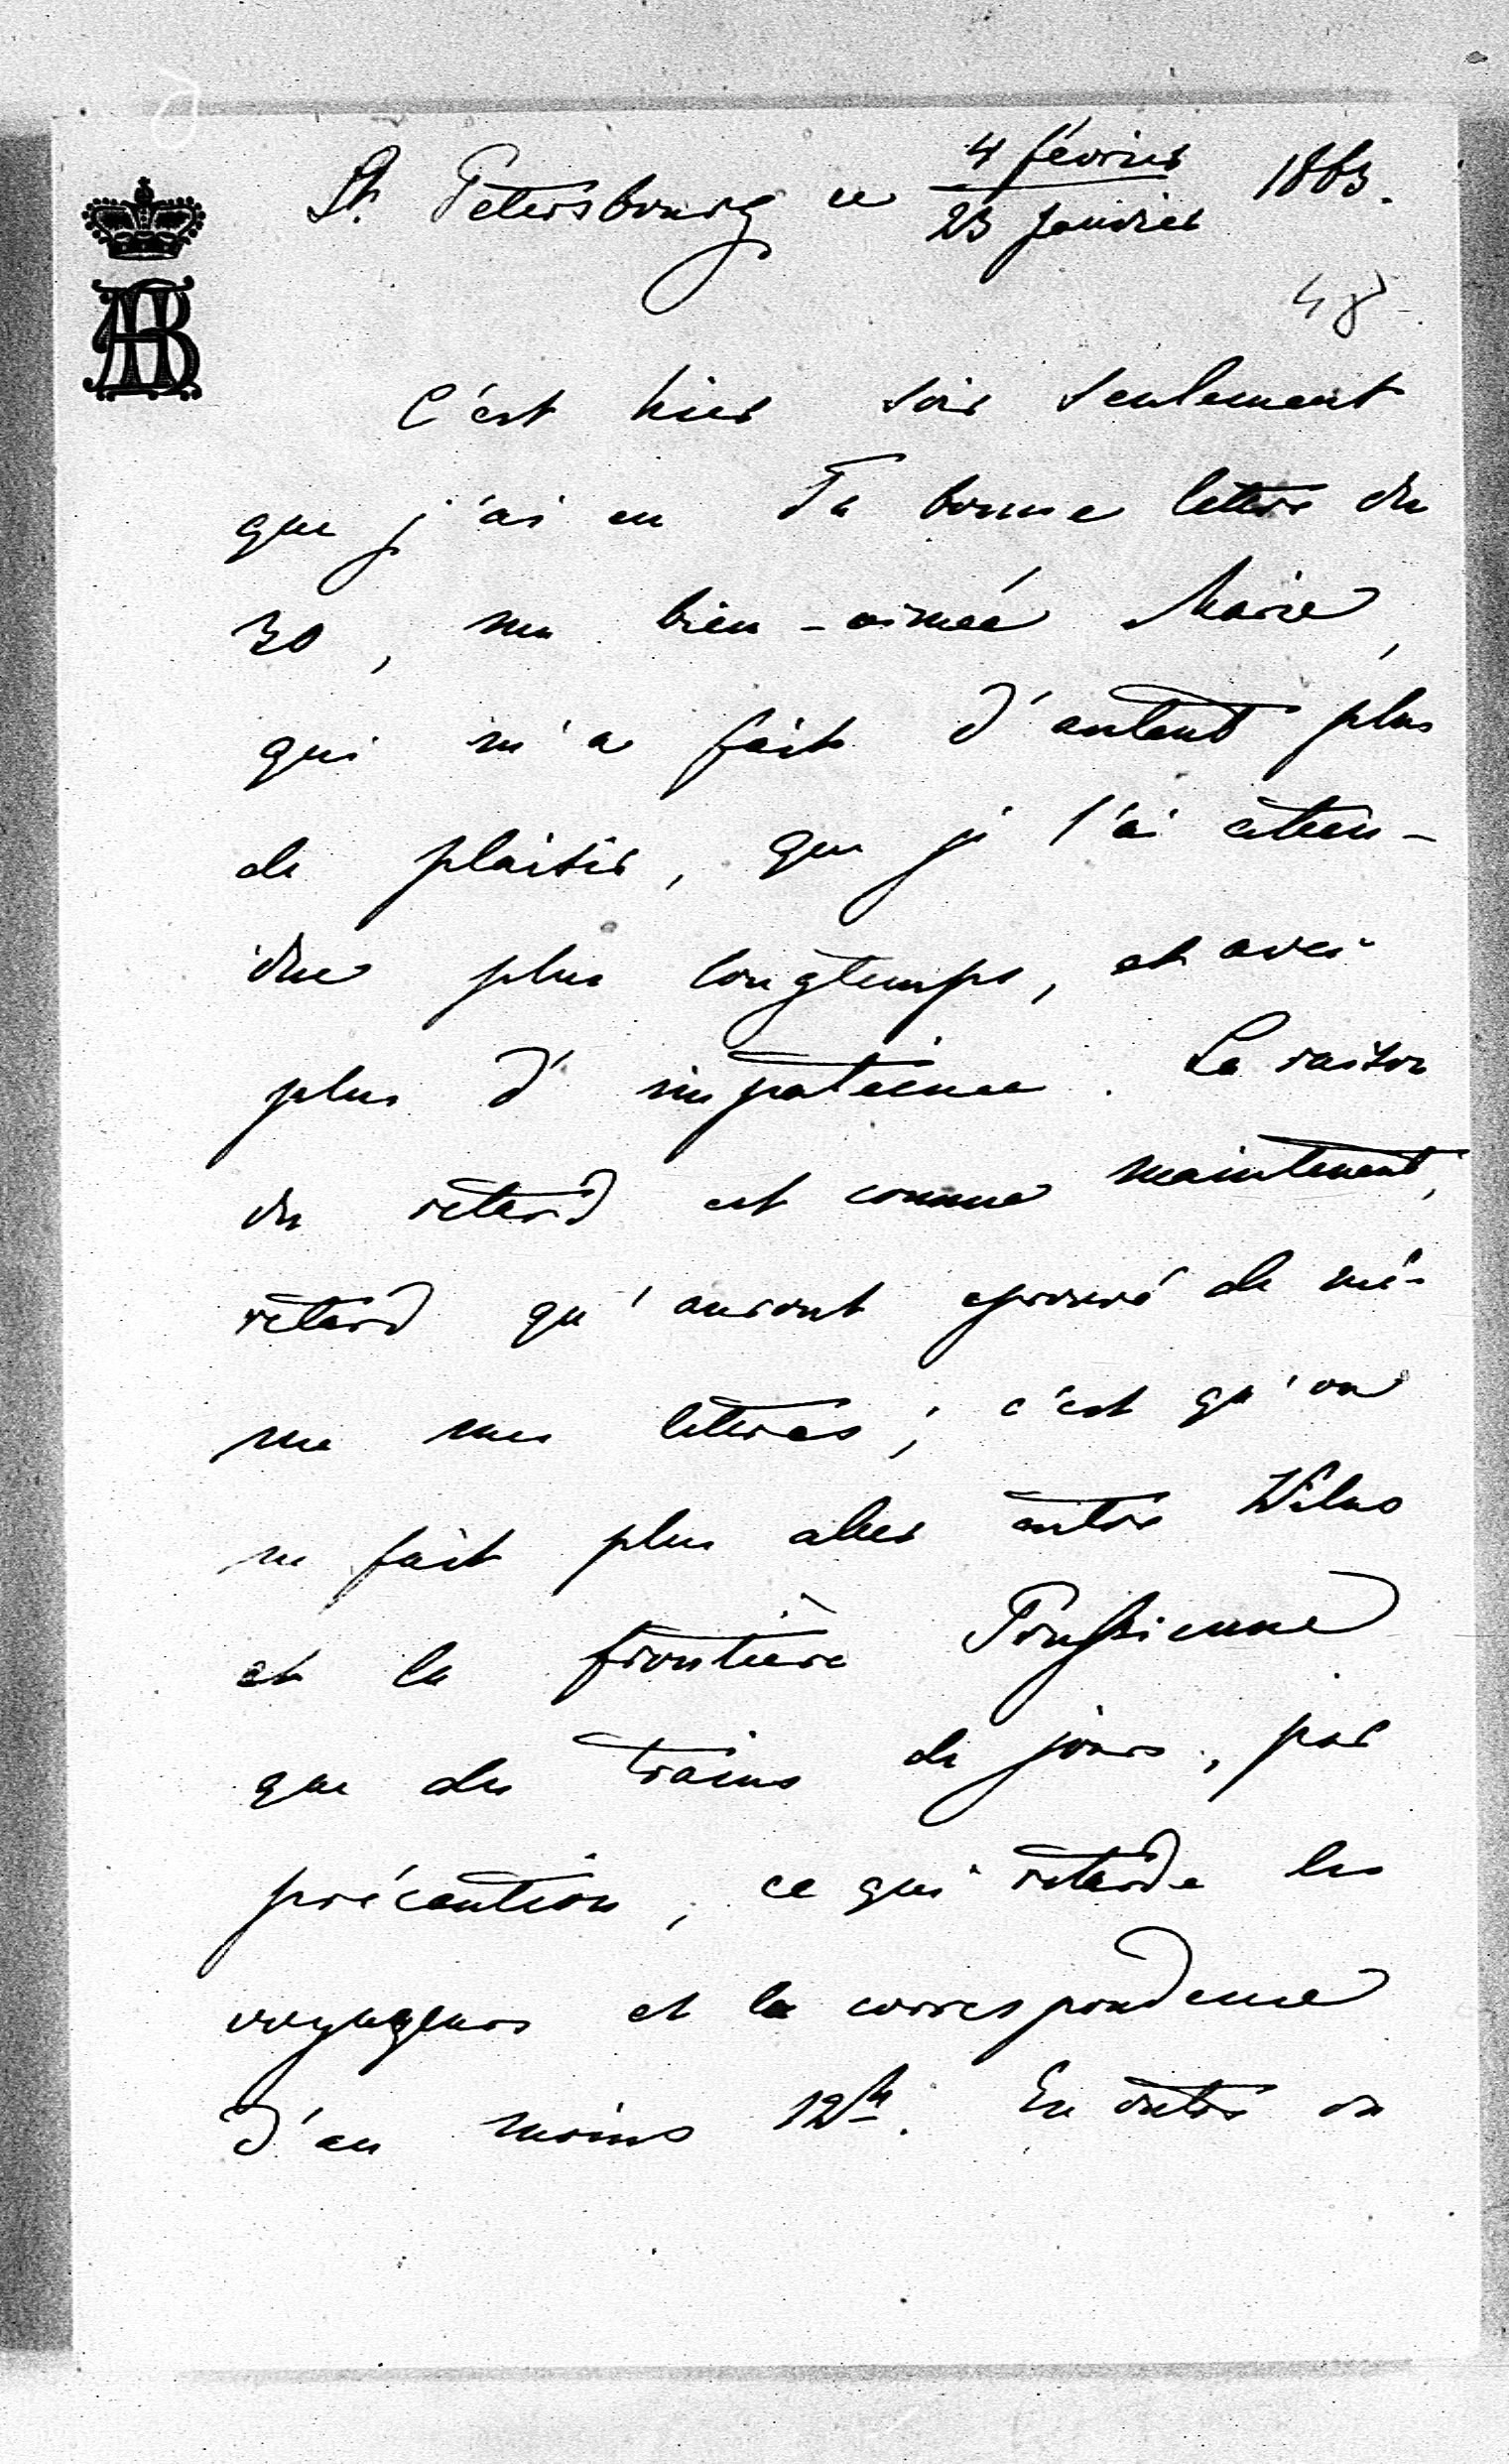 St. Petersbourg ce 4 février / 23 Janvier 1863.
48
C'est hier soir seulement
que j'ai eu Ta bonne lettre du
30, ma bien-aimée Marie,
qui m'a fait d'autant plus
de plaisir, que je l'ai atten-
due plus longtemps, et avec
plus d'impatience. La raison
du retard est connue maintenant,
retard qu'auront eprouvé de mê-
me mes lettres; c'est qu'on
ne fait plus aller entre Wilna
et la frontière Prussienne
que des trains de jours, par
précaution, ce qui retarde les
voyageurs et la correspondence
d'au moins 12h. En outre on